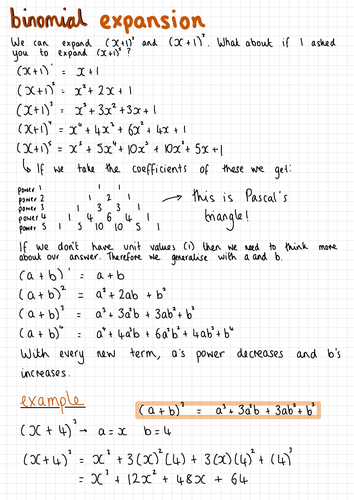 binomial expansion
We can expand (x+1)² and (x+1)³. What about if I asked
you to expand (x+1)⁵?
(x+1)¹ = x+1
(x+1)² = x²+2x+1
(x+1)³ = x³+3x²+3x+1
(x+1)⁴ = x⁴+4x³+6x²+4x+1
(x+1)⁵ = x⁵+5x⁴+10x³+10x²+5x+1
↳ If we take the coefficients of these we get:
power 1 1 1
power 2 1 2 1
power 3 1 3 3 1
power 4 1 4 6 4 1
power 5 1 5 10 10 5 1
→ this is Pascal's
triangle!
If we don't have unit values (1) then we need to think more
about our answer. Therefore we generalise with a and b.
(a+b)¹ = a+b
(a+b)² = a²+2ab+b²
(a+b)³ = a³+3a²b+3ab²+b³
(a+b)⁴ = a⁴+4a³b+6a²b²+4ab³+b⁴
With every new term, a's power decreases and b's
increases.
example
(a+b)³ = a³+3a²b+3ab²+b³
(x+4)³ → a=x b=4
(x+4)³ = x³+3(x)²(4)+3(x)(4)²+(4)³
= x³+12x²+48x+64